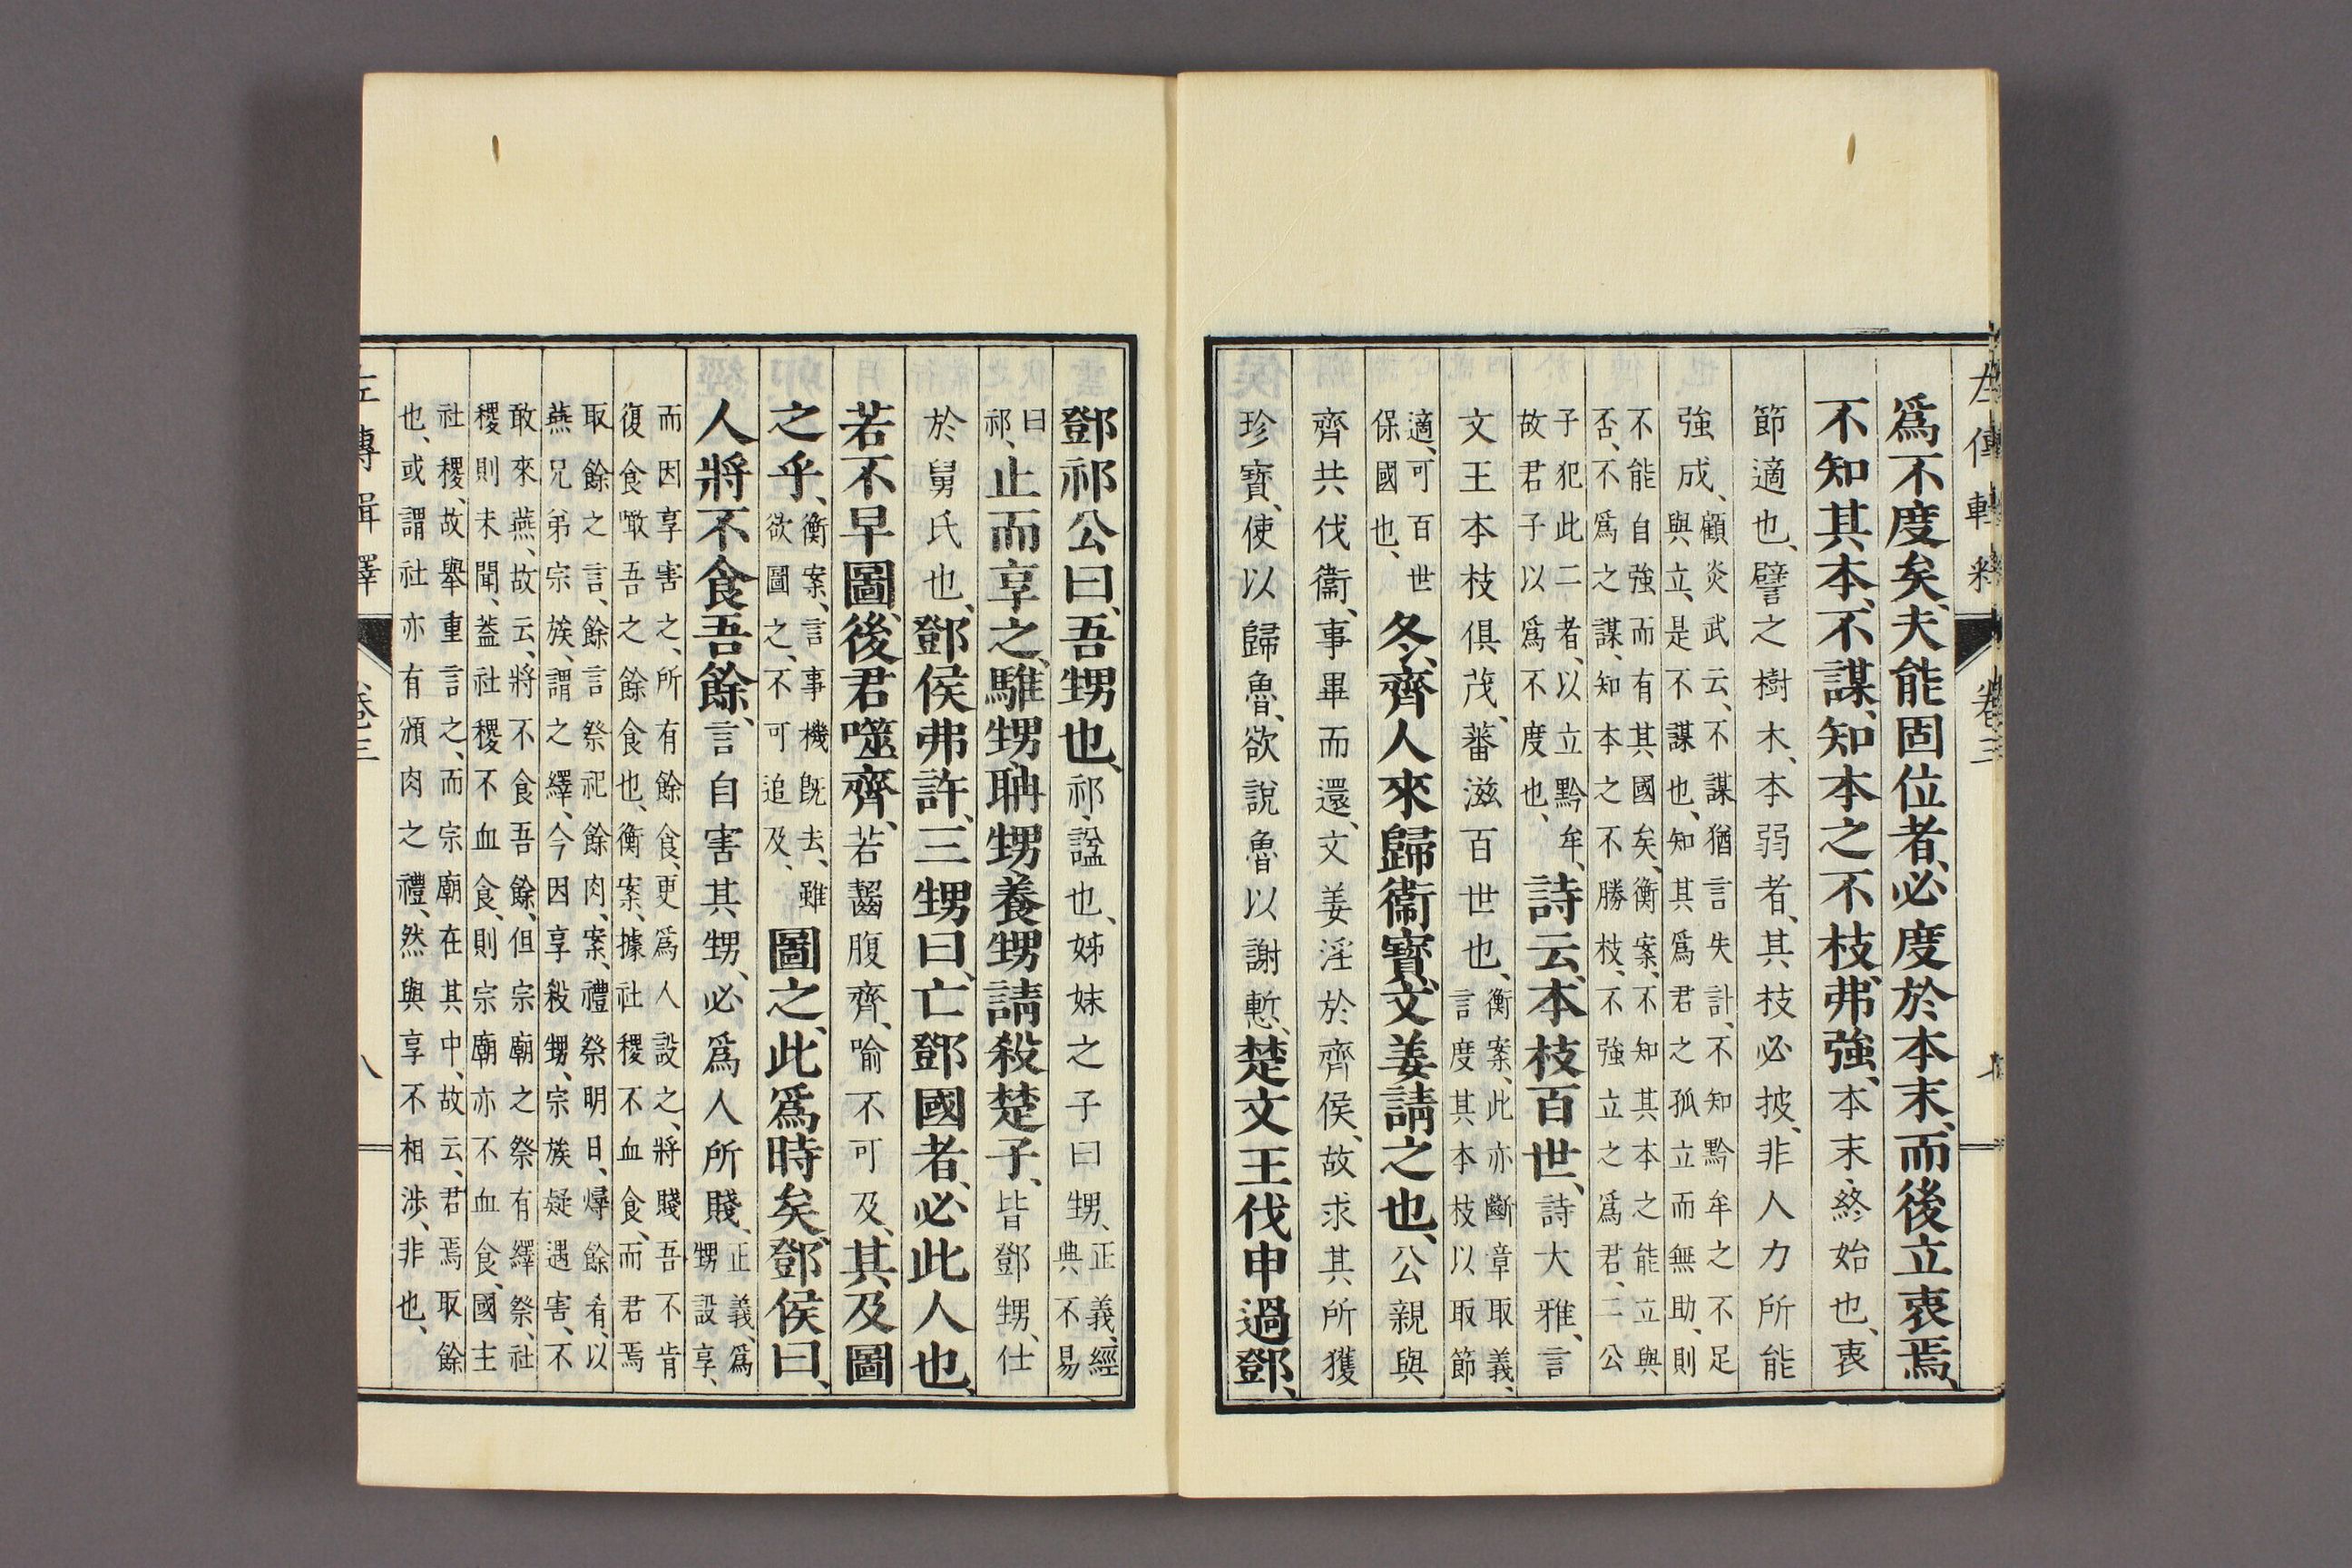 左傳輯釋 卷三 七
爲不度矣、夫能固位者、必度於本末、而後立衷焉、
不知其本、不謀、知本之不枝、弗強、本末、終始也、衷
節適也、譬之樹木、本弱者、其枝必披、非人力所能
強成、顧炎武云、不謀猶言失計、不知黔牟之不足
與立、是不謀也、知其爲君之孤立而無助、則
不能自強而有其國矣、衡案、不知其本之能立與
否、不爲之謀、知本之不勝枝、不強立之爲君、二公
子犯此二者、以立黔牟、
故君子以爲不度也、詩云、本枝百世、詩大雅、言
文王本枝俱茂、蕃滋百世也、衡案、此亦斷章取義、
言度其本枝以取節
適、可百世
保國也、冬、齊人來歸衞寶、文姜請之也、公親與
齊共伐衞、事畢而還、文姜淫於齊侯、故求其所獲
珍寶、使以歸魯、欲說魯以謝慙、楚文王伐申過鄧、
鄧祁公曰、吾甥也、祁、諡也、姊妹之子曰甥、正義、經
典不易
曰
祁、止而享之、騅甥、聃甥、養甥請殺楚子、皆鄧甥、仕
於舅氏也、鄧侯弗許、三甥曰、亡鄧國者、必此人也、
若不早圖、後君噬齊、若齧腹齊、喻不可及、其及圖
之乎、衡案、言事機旣去、雖
欲圖之、不可追及、圖之、此爲時矣、鄧侯曰、
人將不食吾餘、言自害其甥、必爲人所賤、正義、爲
甥設享、
而因享害之、所有餘食、更爲人設之、將賤吾不肯
復食噉吾之餘食也、衡案、據社稷不血食、而君焉
取餘之言、餘言祭祀餘肉、案、禮祭明日、燖餘肴、以
燕兄弟宗族、謂之繹、今因享殺甥、宗族疑遇害、不
敢來燕、故云、將不食吾餘、但宗廟之祭有繹祭、社
稷則未聞、葢社稷不血食、則宗廟亦不血食、國主
社稷、故舉重言之、而宗廟在其中、故云、君焉取餘
也、或謂社亦有頒肉之禮、然與享不相涉、非也、
左傳輯釋 卷三 八